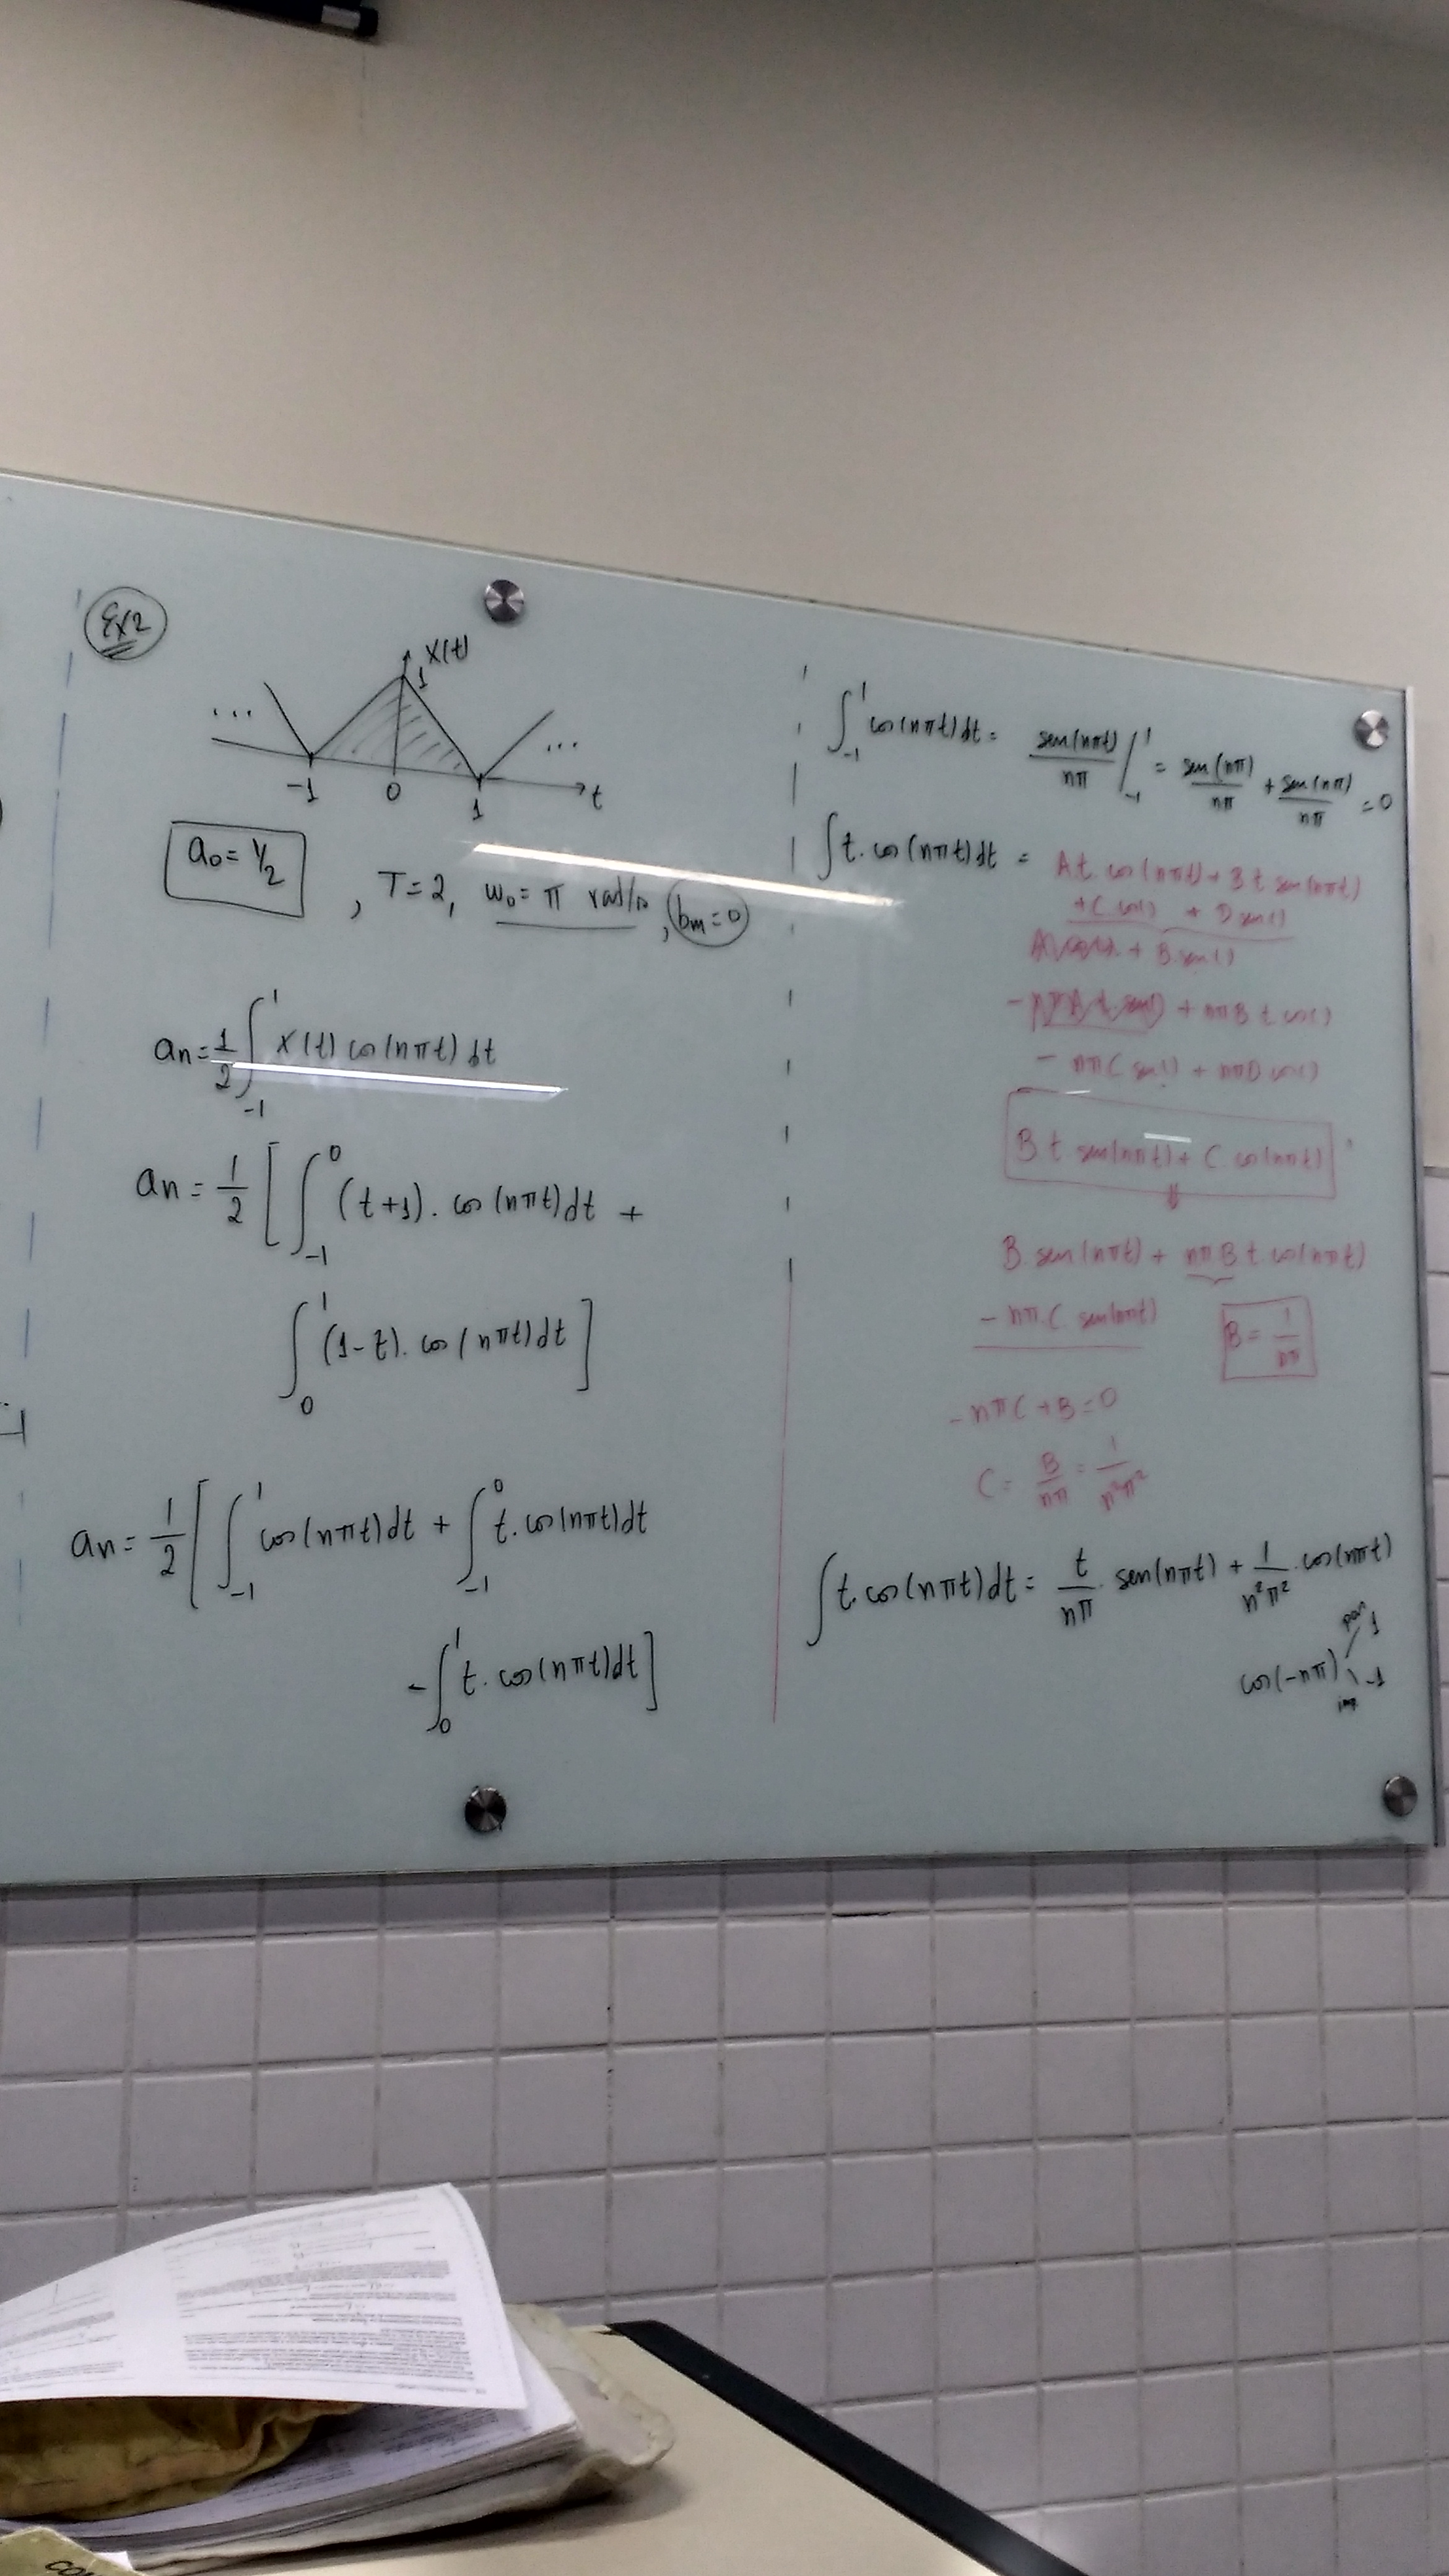 Ex2
x(t)
1
... ...
-1 0 1 t
a₀ = 1/2 , T = 2, ω₀ = π rad/s, bₘ = 0
aₙ = 1/2 ∫₋₁¹ x(t) cos(nπt) dt
aₙ = 1/2 [ ∫₋₁⁰ (t+1). cos(nπt) dt +
∫₀¹ (1-t). cos(nπt) dt ]
aₙ = 1/2 [ ∫₋₁¹ cos(nπt) dt + ∫₋₁⁰ t. cos(nπt) dt
- ∫₀¹ t. cos(nπt) dt ]
∫₋₁¹ cos(nπt) dt = sen(nπt)/nπ |₋₁¹ = sen(nπ)/nπ + sen(nπ)/nπ = 0
∫ t. cos(nπt) dt = At. cos(nπt) + Bt sen(nπt)
+ C cos() + D sen()
A cos() + B sen()
- nπA t sen() + nπB t cos()
- nπC sen() + nπD cos()
B t sen(nπt) + C cos(nπt)
⇓
B sen(nπt) + nπB t cos(nπt)
- nπ C sen(nπt)
B = 1/nπ
- nπC + B = 0
C = B/nπ = 1/n²π²
∫ t. cos(nπt) dt = t/nπ . sen(nπt) + 1/n²π² . cos(nπt)
par 1
cos(-nπ)
imp -1